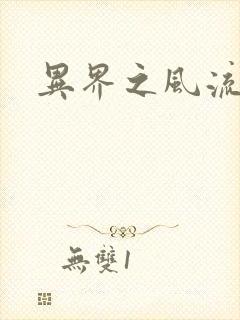 異界之風流
無雙1